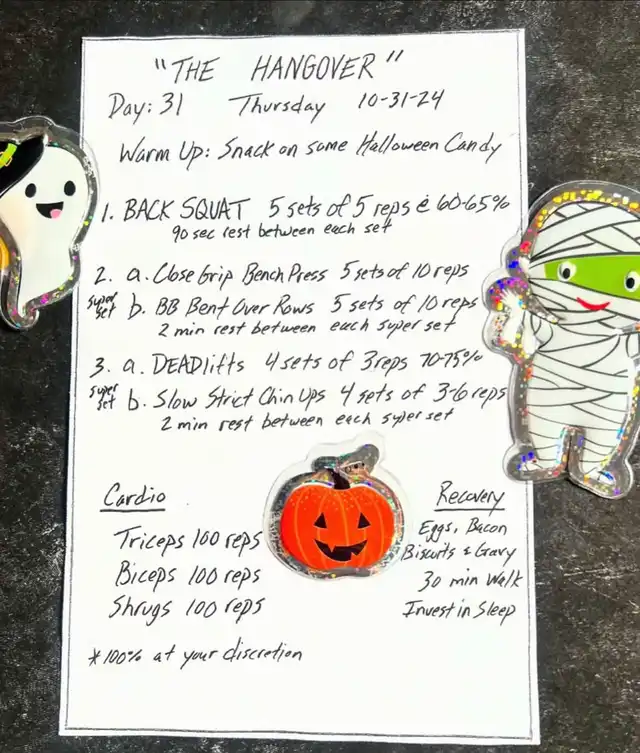 "THE HANGOVER"
Day: 31 Thursday 10-31-24
Warm Up: Snack on some Halloween Candy
1. BACK SQUAT 5 sets of 5 reps @ 60-65%
90 sec rest between each set
2. a. Close Grip Bench Press 5 sets of 10 reps
super set b. BB Bent Over Rows 5 sets of 10 reps
2 min rest between each super set
3. a. DEADlifts 4 sets of 3 reps 70-75%
super set b. Slow Strict Chin Ups 4 sets of 3-6 reps
2 min rest between each super set
Cardio
Triceps 100 reps
Biceps 100 reps
Shrugs 100 reps
*100% at your discretion
Recovery
Eggs, Bacon
Biscuits & Gravy
30 min Walk
Invest in Sleep